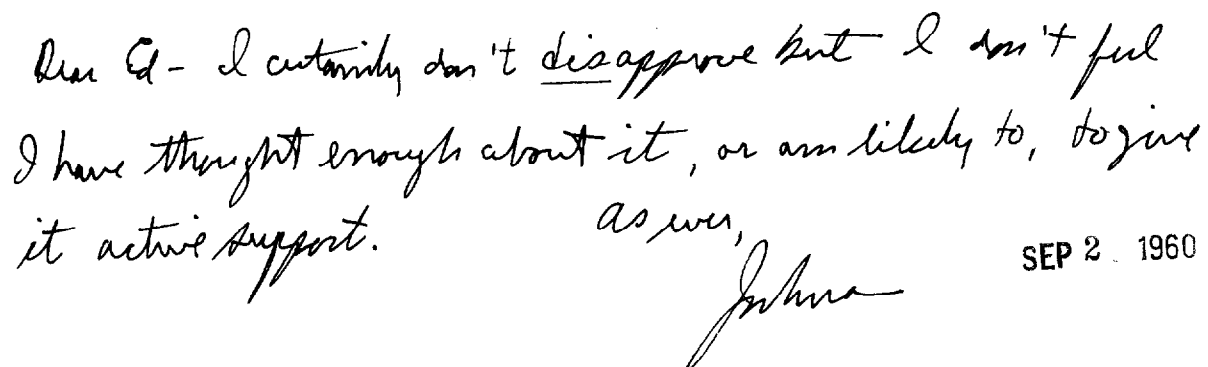 Dear Ed - I certainly don't disapprove but I don't feel
I have thought enough about it, or am likely to, to give
it active support.
As ever,
Joshua
SEP 2 1960